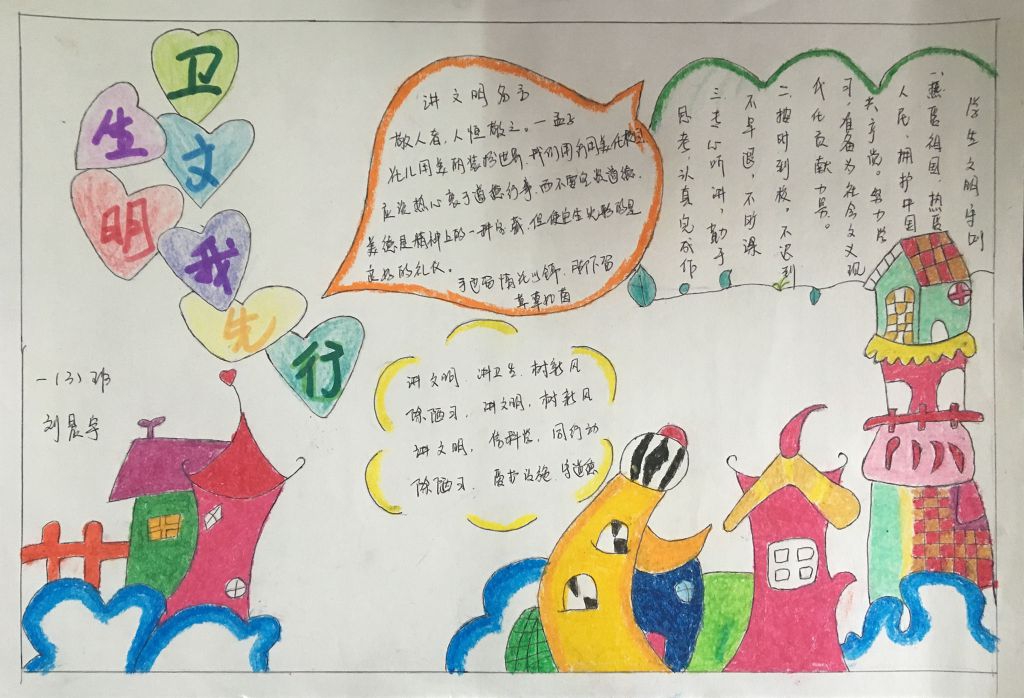 卫
生文
明我
先
行
一(3)班
刘晨宇
讲文明名言
敬人者,人恒敬之。一孟子
花儿用美丽装扮世界,我们用行
应该热心于道德行事,而不要空谈道德.
美德是精神上的一种宝藏,但使它生光彩的是
良好的礼仪。
手边留情花似锦,脚下留
其草如茵
学生文明守则
一、热爱祖国,热爱
人民,拥护中国
共产党。努力学
习,准备为社会主义现
代化贡献力量。
二、按时到校,不迟到
不早退,不旷课
三、专心听讲,勤于
思考,认真完成作
讲文明、讲卫生、树新风
除陋习、讲文明,树新风
讲文明,传科学,同行动
除陋习、爱护设施、守道德